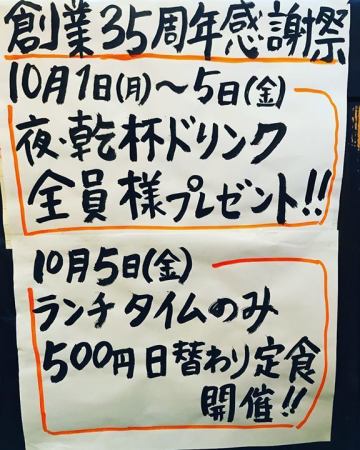 創業35周年感謝祭
10月1日(月)〜5日(金)
夜・乾杯ドリンク
全員様プレゼント!!
10月5日(金)
ランチタイムのみ
500円日替わり定食
開催!!